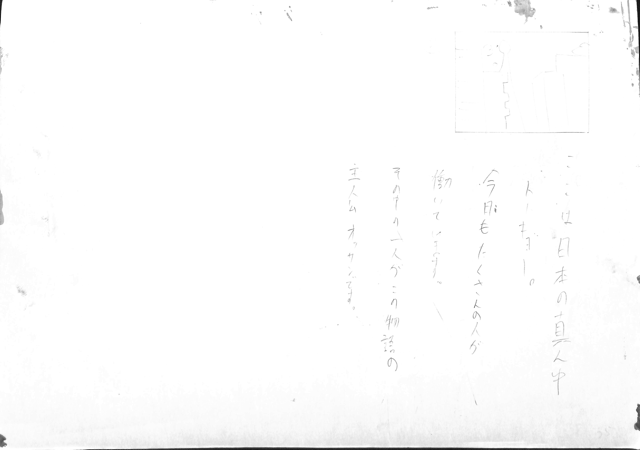 ここは日本の真ん中
トーキョー。
今日もたくさんの人が
働いています。
その中の一人がこの物語の
主人公 オッサンである。